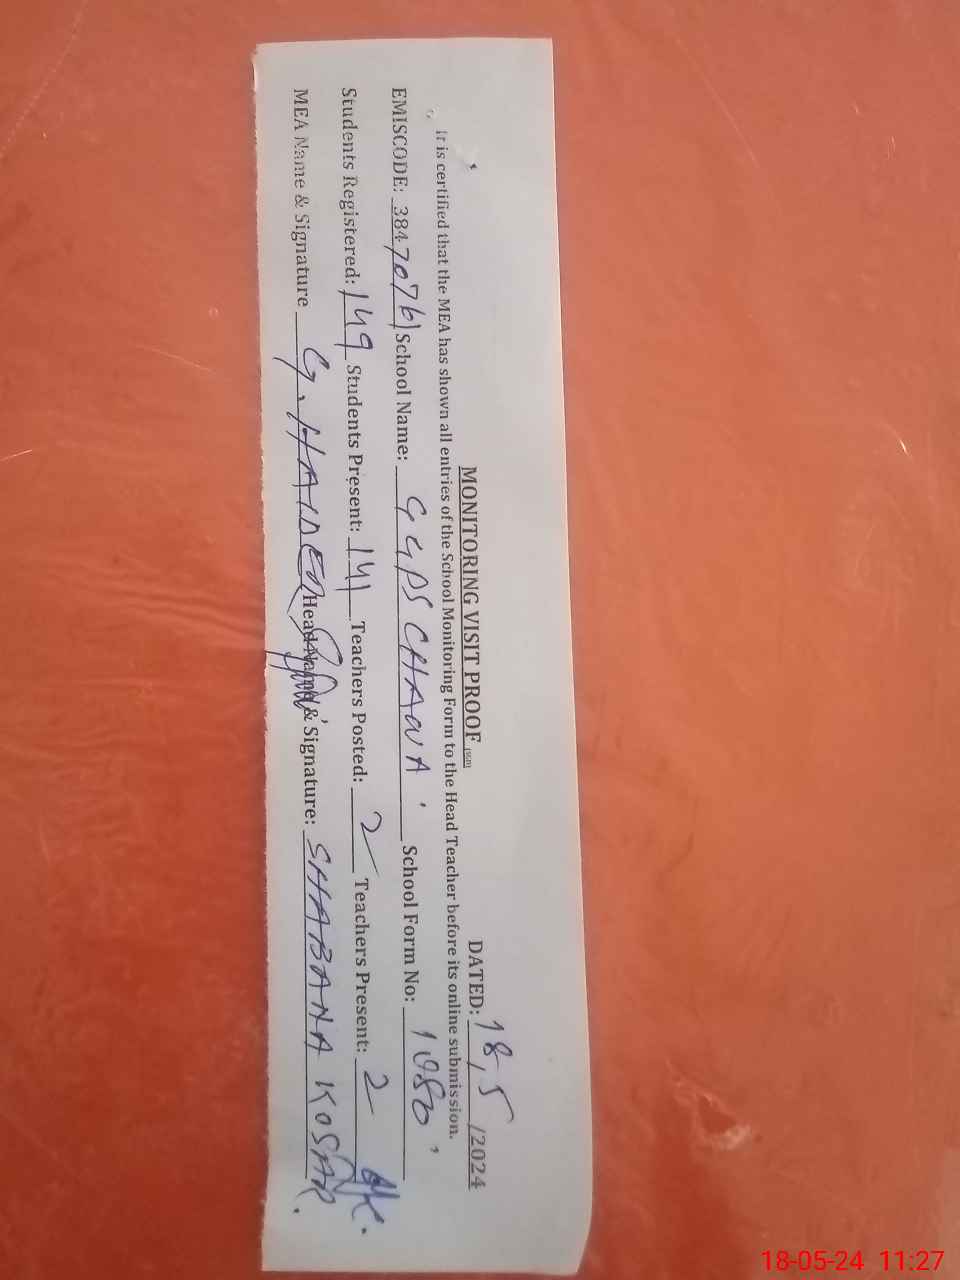 MONITORING VISIT PROOF DATED: 18,5 /2024
It is certified that the MEA has shown all entries of the School Monitoring Form to the Head Teacher before its online submission.
EMISCODE: 38470761 School Name: GGPS CHAWA School Form No: 1080
Students Registered: 149 Students Present: 141 Teachers Posted: 2 Teachers Present: 2
MEA Name & Signature G. HAIDER Head Name & Signature: SHABANA KOSAR.
18-05-24 11:27